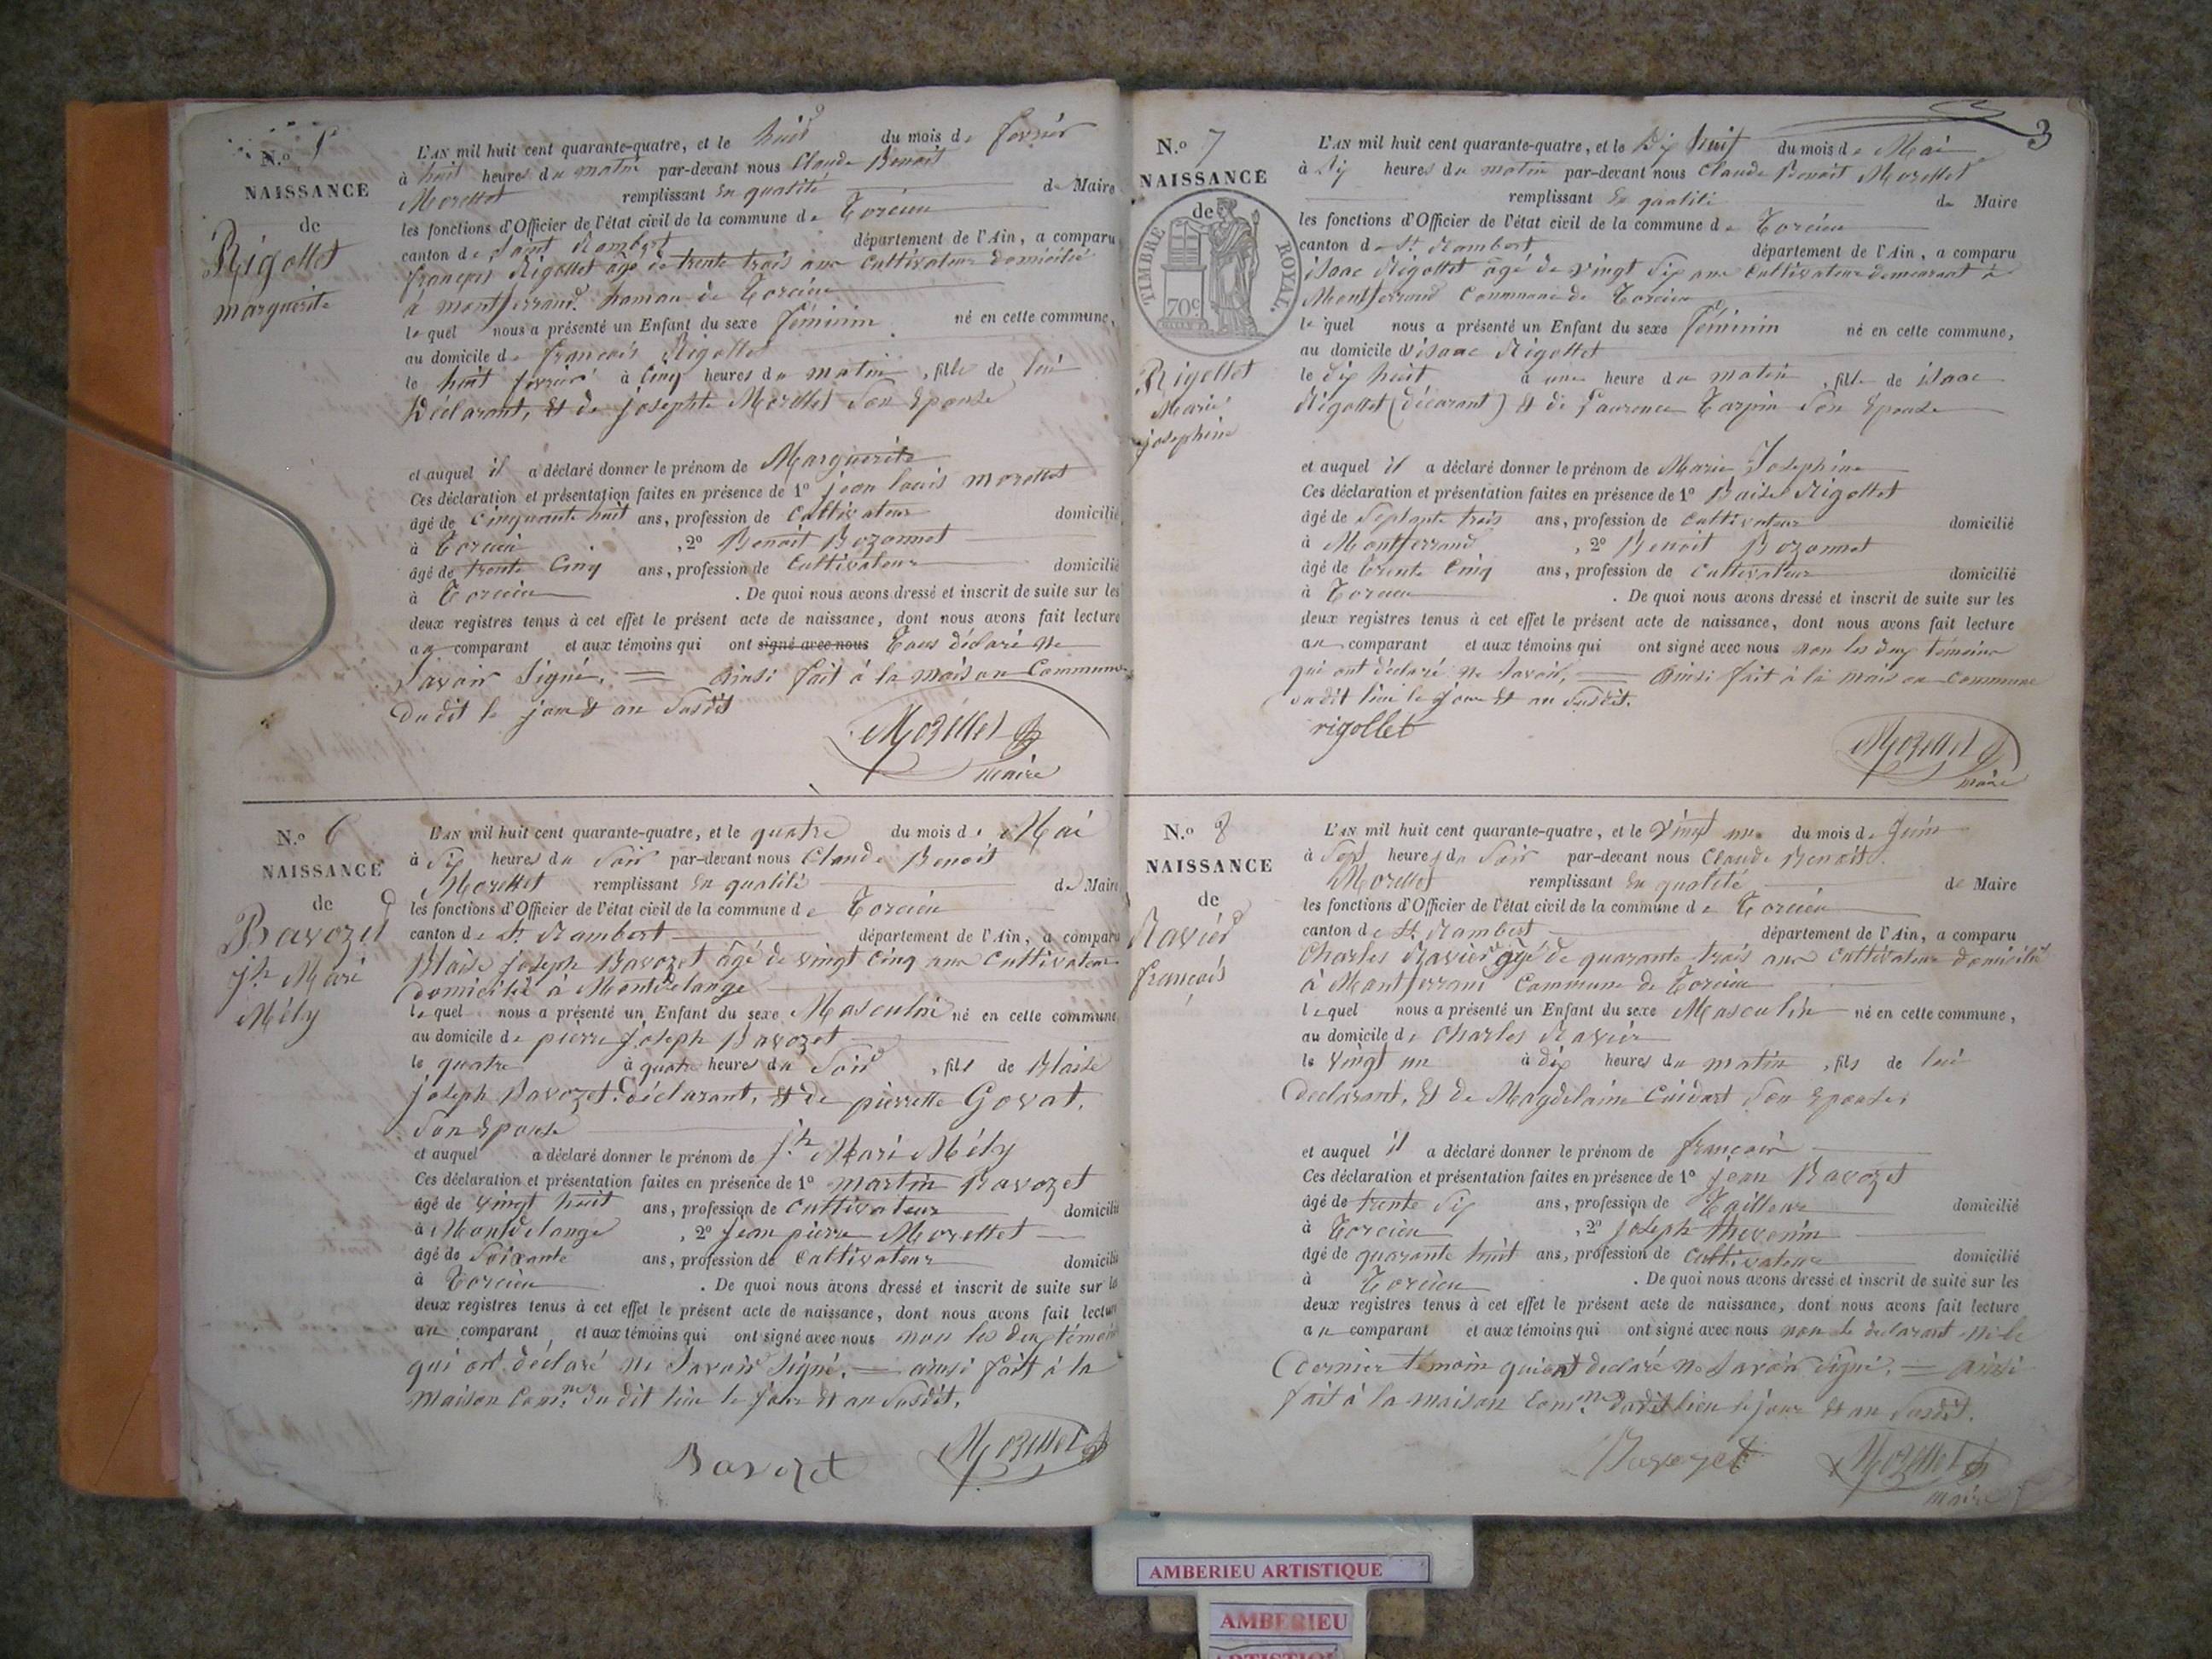 N.o 5
NAISSANCE
de
Rigollet
marguerite
L'AN mil huit cent quarante-quatre, et le huit du mois de février
à huit heures du matin par-devant nous Claude Benoit
Morellet remplissant en qualité de Maire
les fonctions d'Officier de l'état civil de la commune de Torcieu
canton de Saint Rambert département de l'Ain, a comparu
françois Rigollet âgé de trente trois ans cultivateur domicilié
à montferrand hamau de Torcieu
lequel nous a présenté un Enfant du sexe féminin né en cette commune,
au domicile de françois Rigollet
le huit février à cinq heures du matin, fille de lui
Déclarant, et de josephte Morellet son épouse
et auquel il a déclaré donner le prénom de Marguerite
Ces déclaration et présentation faites en présence de 1º jean louis morellet
âgé de cinquante huit ans, profession de cultivateur domicilié
à Torcieu, 2º Benoit Bozonnet
âgé de trente cinq ans, profession de cultivateur domicilié
à Torcieu. De quoi nous avons dressé et inscrit de suite sur les
deux registres tenus à cet effet le présent acte de naissance, dont nous avons fait lecture
au comparant et aux témoins qui ont signé avec nous tous déclaré ne
savoir signé. = Ainsi fait à la maison commune
du dit le jour et an susdit
Morellet
maire
N.o 6
NAISSANCE
de
Bavozet
jh Marie
Mély
L'AN mil huit cent quarante-quatre, et le quatre du mois de Mai
à six heures du soir par-devant nous Claude Benoit
Morellet remplissant en qualité de Maire
les fonctions d'Officier de l'état civil de la commune de Torcieu
canton de St Rambert département de l'Ain, a comparu
Blaise joseph Bavozet âgé de vingt cinq ans cultivateur
domicilié à Montdelange
lequel nous a présenté un Enfant du sexe Masculin né en cette commune
au domicile de pierre joseph Bavozet
le quatre à quatre heures du soir, fils de Blaise
joseph Bavozet déclarant, et de pierrette Govat,
son épouse
et auquel a déclaré donner le prénom de jh Marie Mély
Ces déclaration et présentation faites en présence de 1º martin Bavozet
âgé de vingt huit ans, profession de cultivateur domicilié
à Montdelange, 2º jean pierre Morellet
âgé de soixante ans, profession de cultivateur domicilié
à Torcieu. De quoi nous avons dressé et inscrit de suite sur les
deux registres tenus à cet effet le présent acte de naissance, dont nous avons fait lecture
au comparant et aux témoins qui ont signé avec nous non les deux témoins
qui ont déclaré ne savoir signé. = ainsi fait à la
maison comne du dit lieu le jour et an susdit.
Bavozet
Morellet
3
N.o 7
NAISSANCE
de
TIMBRE ROYAL.
70c
Rigollet
Marie
josephine
L'AN mil huit cent quarante-quatre, et le dix huit du mois de Mai
à dix heures du matin par-devant nous Claude Benoit Morellet
remplissant en qualité de Maire
les fonctions d'Officier de l'état civil de la commune de Torcieu
canton de St. Rambert département de l'Ain, a comparu
isaac Rigollet âgé de vingt six ans cultivateur demeurant à
Montferrand commune de Torcieu
lequel nous a présenté un Enfant du sexe féminin né en cette commune,
au domicile d'isaac Rigollet
le dix huit à une heure du matin, fille de isaac
Rigollet (déclarant) et de Laurence Tarpin son épouse
et auquel il a déclaré donner le prénom de Marie Josephine
Ces déclaration et présentation faites en présence de 1º Blaise Rigollet
âgé de septante trois ans, profession de cultivateur domicilié
à Montferrand, 2º Benoit Bozonnet
âgé de trente cinq ans, profession de cultivateur domicilié
à Torcieu. De quoi nous avons dressé et inscrit de suite sur les
deux registres tenus à cet effet le présent acte de naissance, dont nous avons fait lecture
au comparant et aux témoins qui ont signé avec nous non les deux témoins
qui ont déclaré ne savoir, = Ainsi fait à la maison commune
du dit lieu le jour et an susdit.
rigollet
Morellet
maire
N.o 8
NAISSANCE
de
Ravier
françois
L'AN mil huit cent quarante-quatre, et le vingt un du mois de Juin
à sept heures du soir par-devant nous Claude Benoit
Morellet remplissant en qualité de Maire
les fonctions d'Officier de l'état civil de la commune de Torcieu
canton de St. Rambert département de l'Ain, a comparu
Charles Ravier âgé de quarante trois ans cultivateur domicilié
à Montferrand commune de Torcieu
lequel nous a présenté un Enfant du sexe Masculin né en cette commune,
au domicile de Charles Ravier
le vingt un à dix heures du matin, fils de lui
déclarant, et de Magdelaine Cuidart son épouse,
et auquel il a déclaré donner le prénom de françois
Ces déclaration et présentation faites en présence de 1º jean Bavozet
âgé de trente six ans, profession de Tailleur domicilié
à Torcieu, 2º joseph thevenin
âgé de quarante huit ans, profession de cultivateur domicilié
à Torcieu. De quoi nous avons dressé et inscrit de suite sur les
deux registres tenus à cet effet le présent acte de naissance, dont nous avons fait lecture
au comparant et aux témoins qui ont signé avec nous non le declarant ni le
dernier témoin qui ont declaré ne savoir signé. = ainsi
fait à la maison comne dudit lieu le jour et an susdit.
Bavozet
Morellet
maire
AMBERIEU ARTISTIQUE
AMBERIEU
ARTISTIQUE